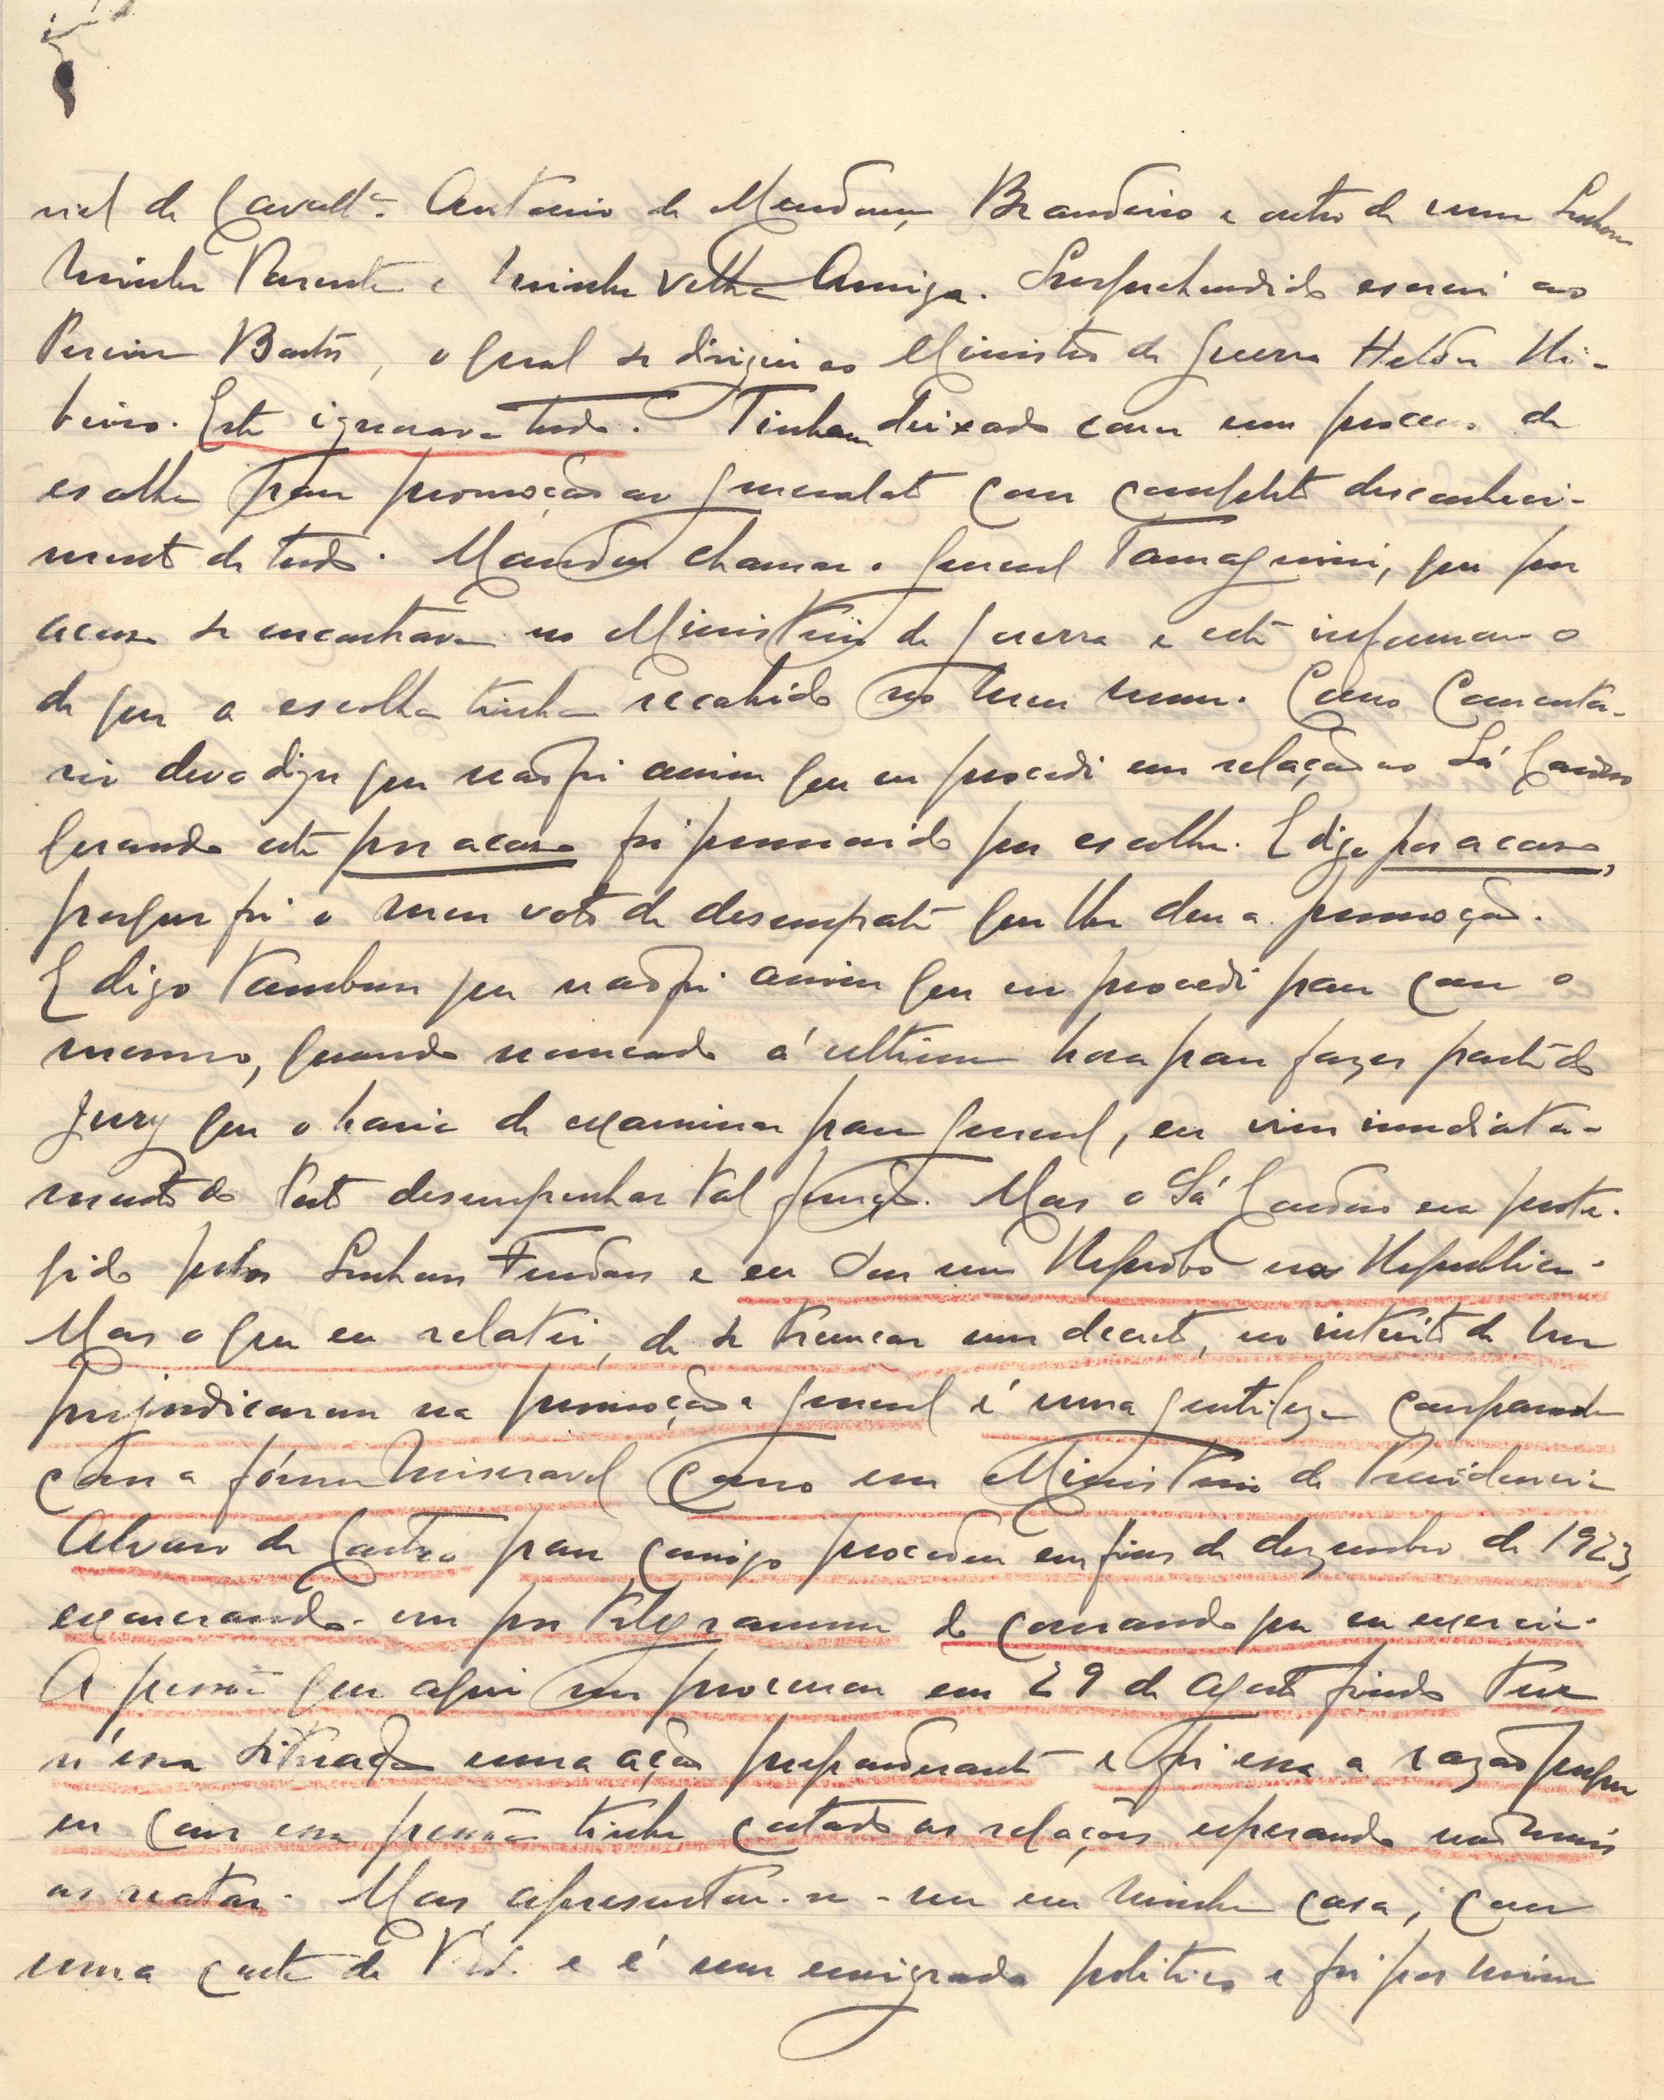 nel de Cavallª. Antonio de Mendonça Brandeiro e outro de uma Senhora
minha Parente e minha velha Amiga. Surprehendido escrevi ao
Pereira Bastos, o qual se dirigiu ao Ministro da Guerra Helder Ri-
beiro. Este ignorava tudo. Tinham deixado correr um processo de
escolha para promoção ao generalato com completo desconheci-
mento de tudo. Mandou chamar o general Tamagnini, que por
acaso se encontrava no Ministerio da Guerra e este informou-o
de que a escolha tinha recahido no meu nome. Como comenta-
rio devo dizer que não foi assim que eu procedi em relação ao Sá Cardoso
quando este por acaso foi promovido por escolha. E digo por acaso,
porque foi o meu voto de desempate que lhe deu a promoção.
E digo tambem que não foi assim que eu procedi para com o
mesmo, quando nomeado á ultima hora para fazer parte do
Jury que o havia de examinar para general, eu vim immediata-
mente do Porto desempenhar tal função. Mas o Sá Cardoso era prote-
gido pelos Senhores Feudaes e eu sou um Reprobo na Republica.
Mas o que eu relatei, de se truncar um decreto, no intuito de me
prejudicarem na promoção a general é uma gentileza comparada
com a fórma miseravel como um Ministerio da Presidencia
Alvaro de Castro para comigo procedeu em fins de dezembro de 1923,
exonerando-me por telegramma do comando que eu exercia.
A pessôa que aqui me procurou em 29 de Agosto findo teve
n'essa situação uma ação preponderante e foi essa a razão porque
eu com essa pessôa tinha cortado as relações esperando não mais
as reatar. Mas apresentou-se-me em minha casa, com
uma carta de V. e é um emigrado politico e foi por mim